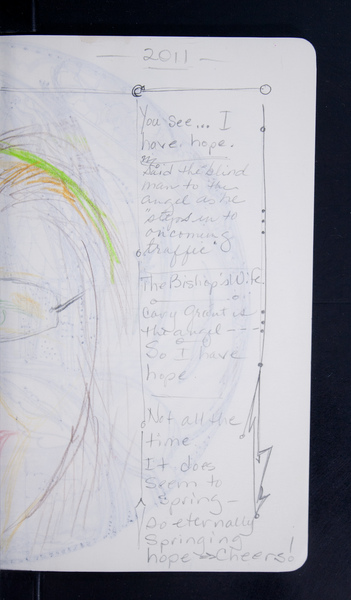 — 2011 —
You see... I
have hope.
Said the blind
man to the
angel as he
"steps in to
on coming
traffic"
The Bishop's Wife
Cary Grant is
the angel - - -
So I have
hope
Not all the
time
It does
Seem to
Spring -
So eternally
Springing
hope >> Cheers!